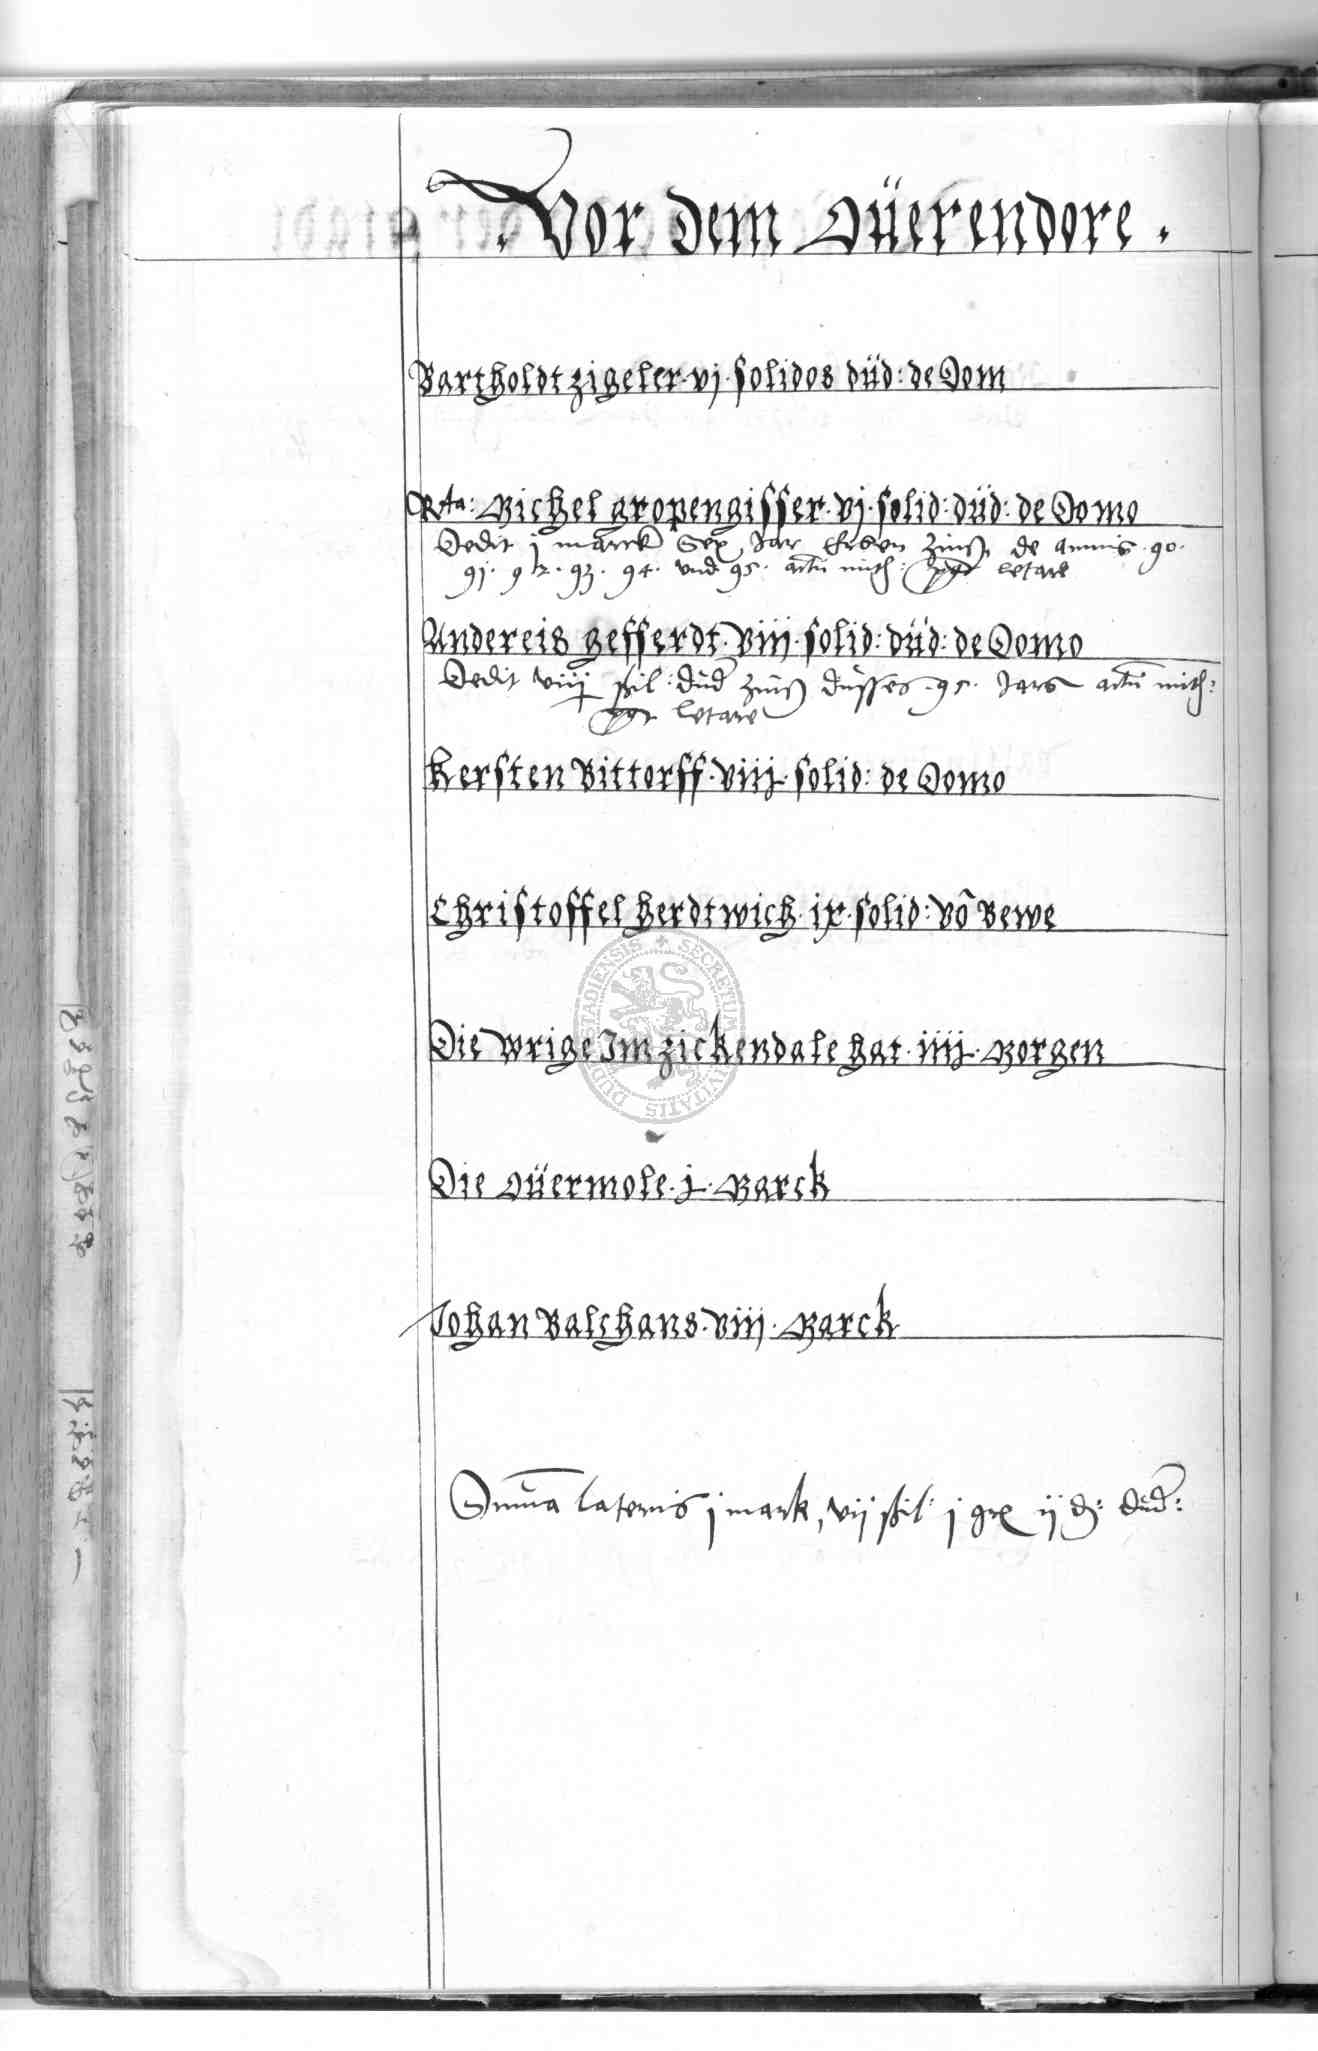 . Vor dem Oüerendore .
Bartholdt zigeler · vj · solidos düd: de Dom
Rta: Michel gropengisser · vj · solid: düd: de Domo
Dedit j marck Sex Jar Erben zinß de annis · 90 ·
91 · 92 · 93 · 94 · vnd 95 · actū mith: post letare
Andereis gefferdt · viij · solid: düd: de Domo
Dedit viij ßil: düd zinß düsses · 95 · Jars actū mith:
post letare
Kersten Bittorff · viij · solid: de Domo
Christoffel herdtwich · ix · solid: vō Bewe
Die wrige Im zickendale hat · iiij · Morgen
Die Oüermole · j · Marck
Johan Balchans · viij · Marck
Suma lateris j mark, vij ßil: j gr ij d: düd:
SECRETUM CIVITATIS DUDERSTADIENSIS